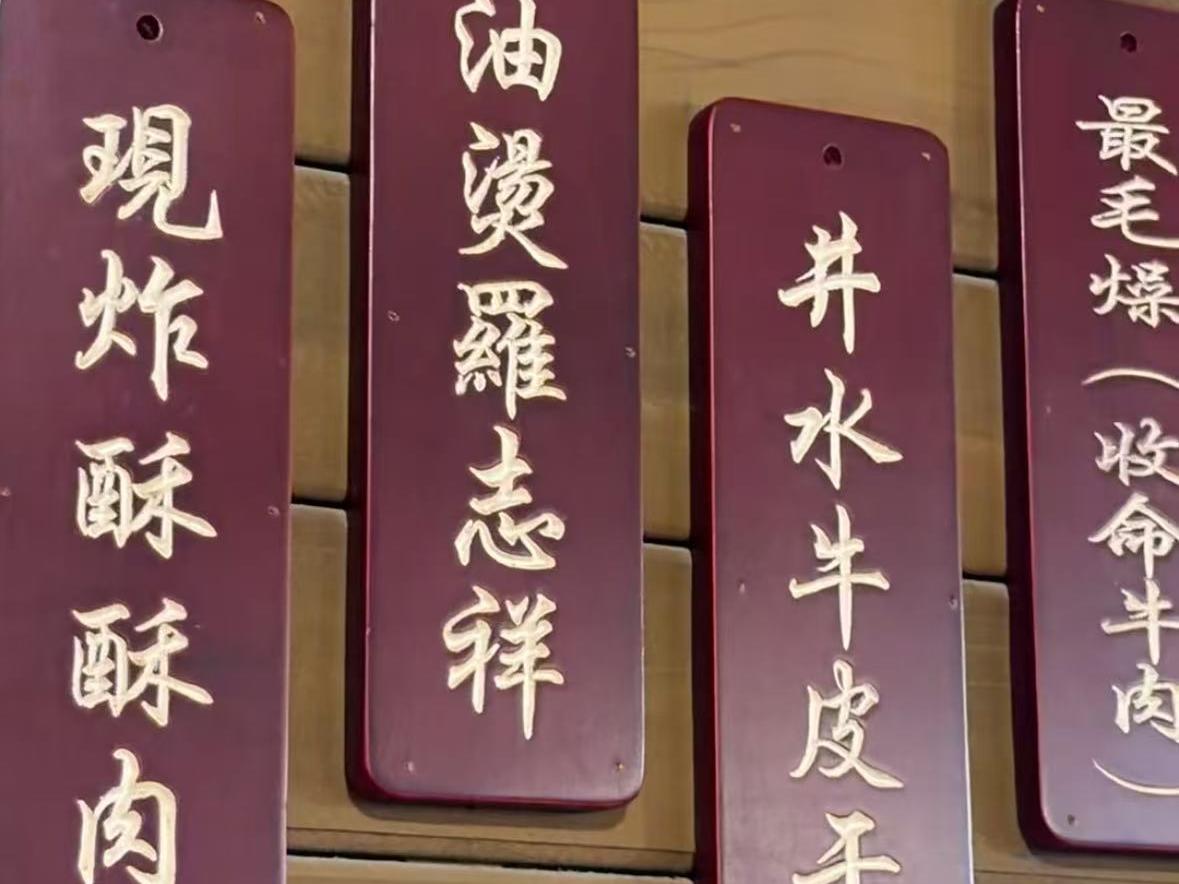 現炸酥酥肉
油燙羅志祥
井水牛皮
最毛燥（收命牛肉）